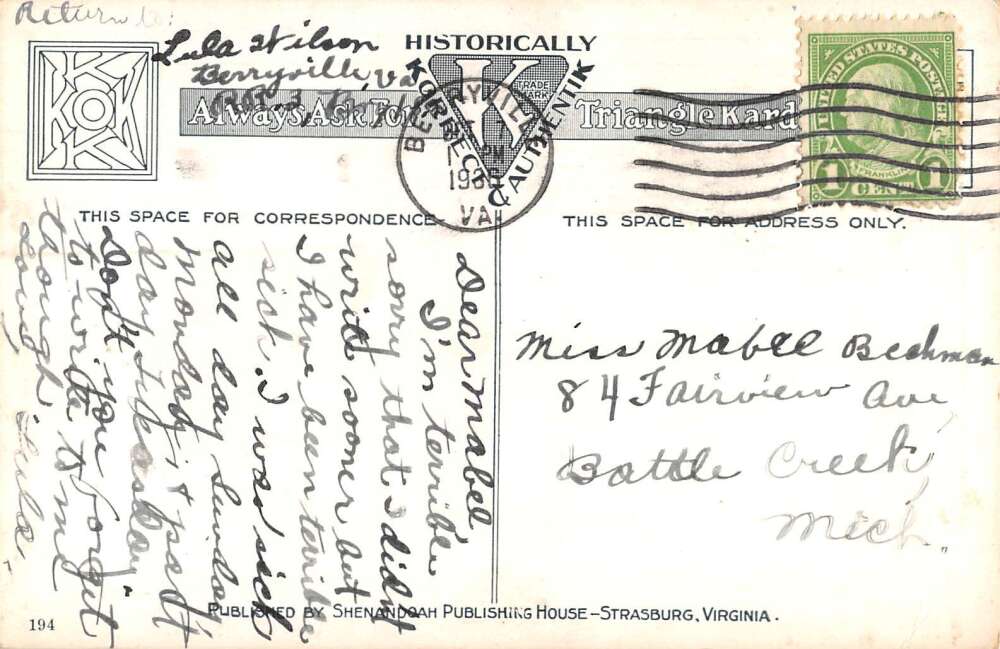 Return to:
Lula Wilson
Berryville, Va
R.R. 3
KROM
HISTORICALLY
KORRECT & AUTHENTIK
K
TRADE MARK
Always Ask For Triangle Kards
BERRYVILLE
PM
VA
UNITED STATES POSTAGE
FRANKLIN
1 CENT 1
THIS SPACE FOR CORRESPONDENCE
THIS SPACE FOR ADDRESS ONLY.
Dear Mabel
I'm terrible
sorry that I didn't
write sooner but
I have been terrible
sick. I was sick
all day Sunday,
Monday, & part
day Tuesday.
Don't you forget
to write to me
Lula
Miss Mabel Beckman
84 Fairview Ave
Battle Creek,
Mich.
PUBLISHED BY SHENANDOAH PUBLISHING HOUSE–STRASBURG, VIRGINIA.
194